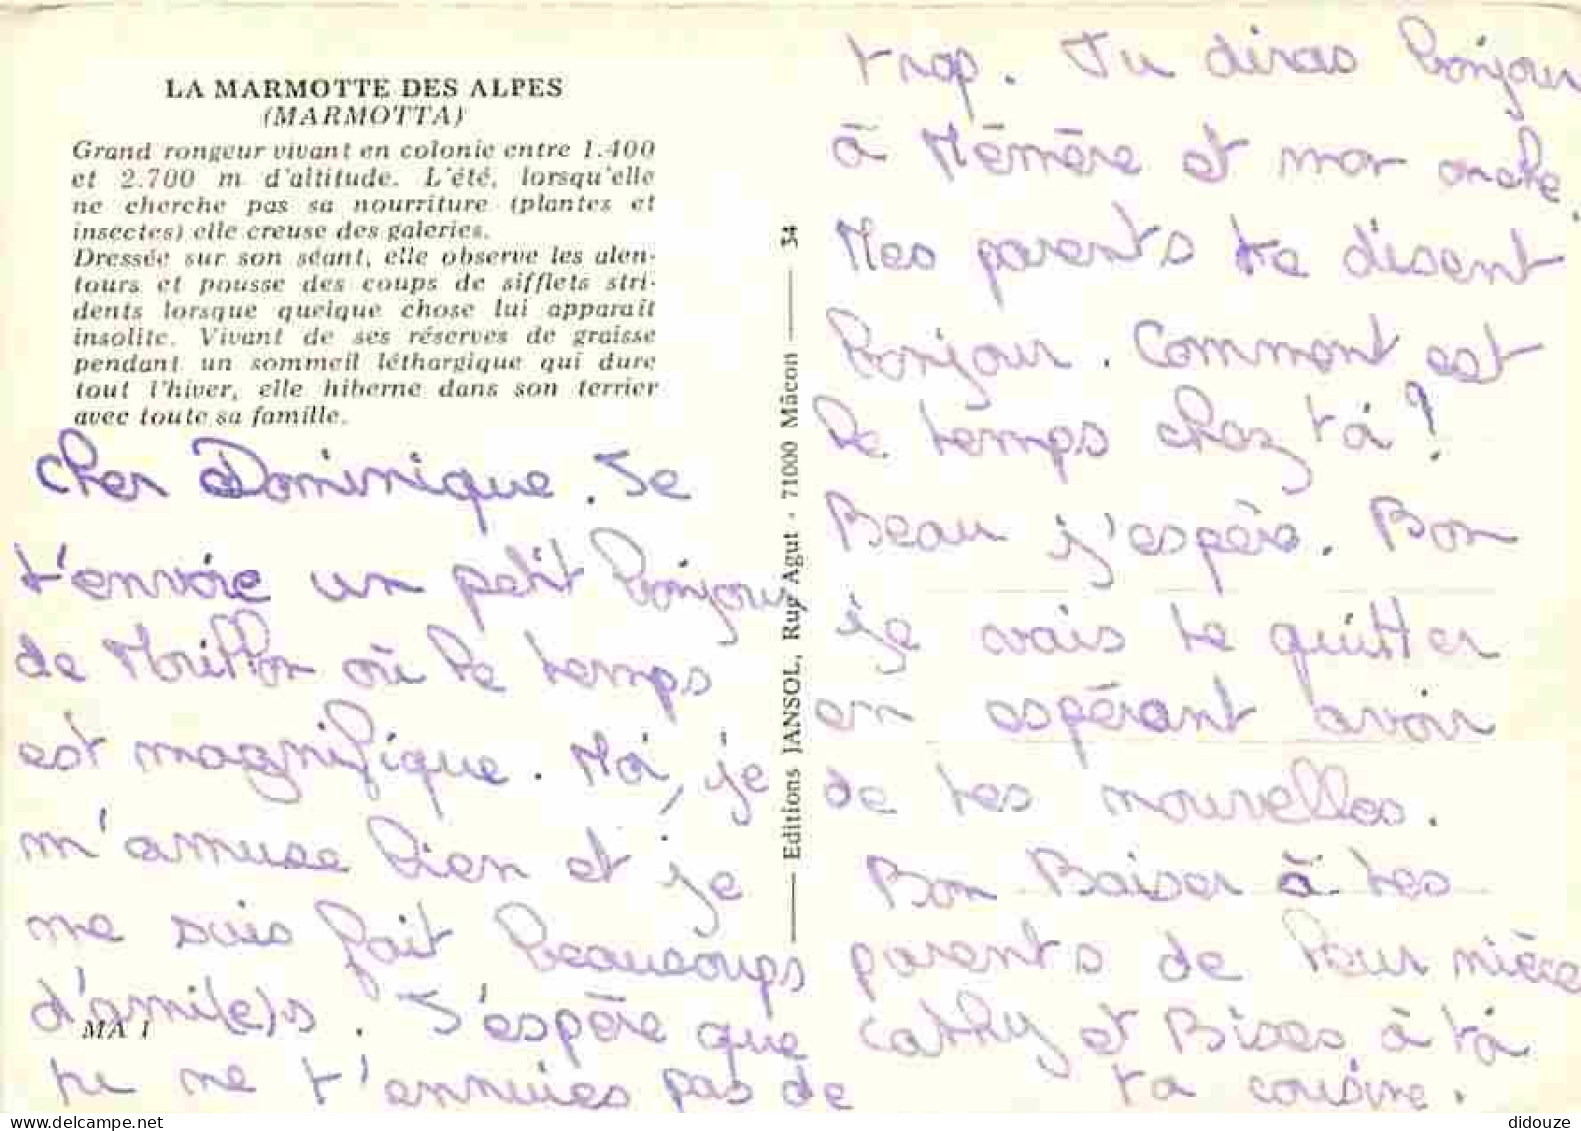 LA MARMOTTE DES ALPES
(MARMOTTA)
Grand rongeur vivant en colonie entre 1.400
et 2.700 m d'altitude. L'été, lorsqu'elle
ne cherche pas sa nourriture (plantes et
insectes) elle creuse des galeries.
Dressée sur son séant, elle observe les alen-
tours et pousse des coups de sifflets stri-
dents lorsque quelque chose lui apparait
insolite. Vivant de ses réserves de graisse
pendant un sommeil léthargique qui dure
tout l'hiver, elle hiberne dans son terrier
avec toute sa famille.
Cher Dominique. Je
t'envoie un petit bonjour
de Morillon où le temps
est magnifique. Moi, je
m'amuse bien et je
me suis fait beaucoups
d'ami(e)s. J'espère que
tu ne t'ennuies pas de
MA 1
Editions JANSOL, Rue Agut - 71000 Mâcon 34
trop. Tu diras bonjour
à Mémère et mon oncle.
Mes parents te disent
bonjour. Comment est
le temps chez toi?
Beau j'espère. Bon
je vais te quitter
en espérant avoir
de tes nouvelles.
Bon Baiser à tes
parents de leur nièce
Cathy et Bises à toi
ta cousine.
didouze